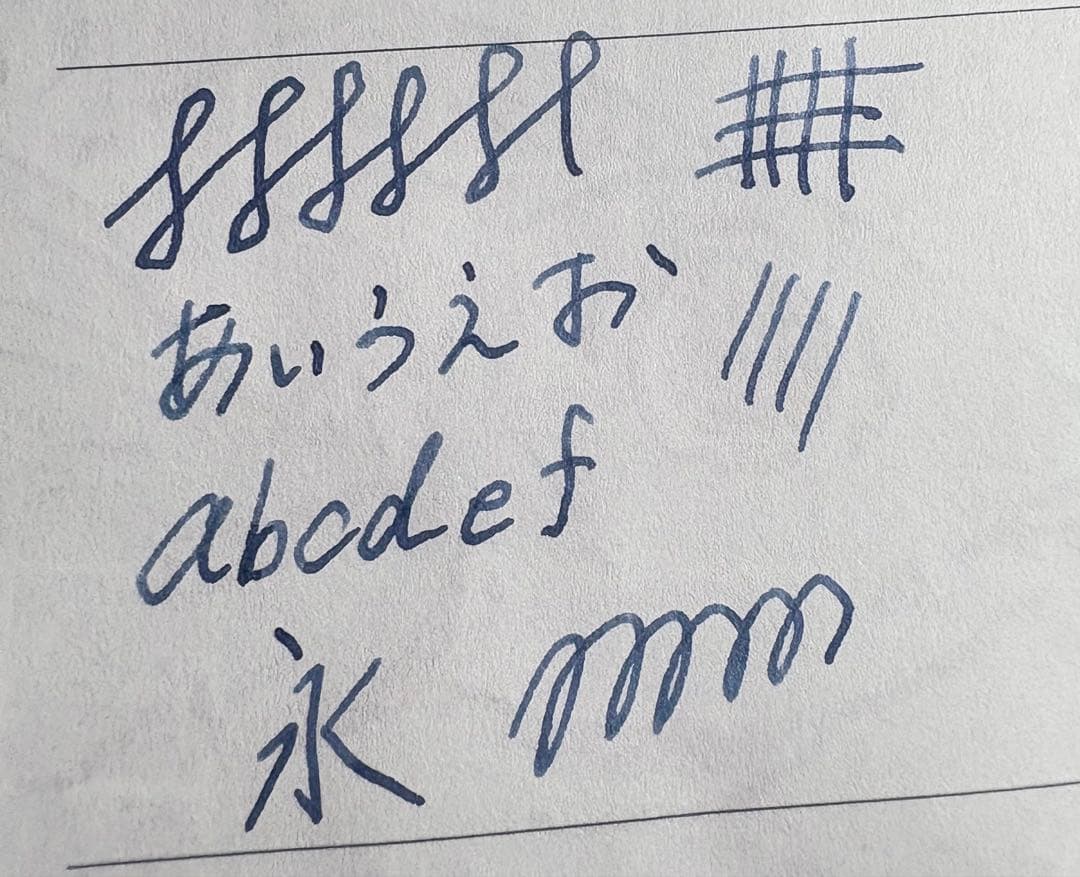 あいうえお
abcdef
永